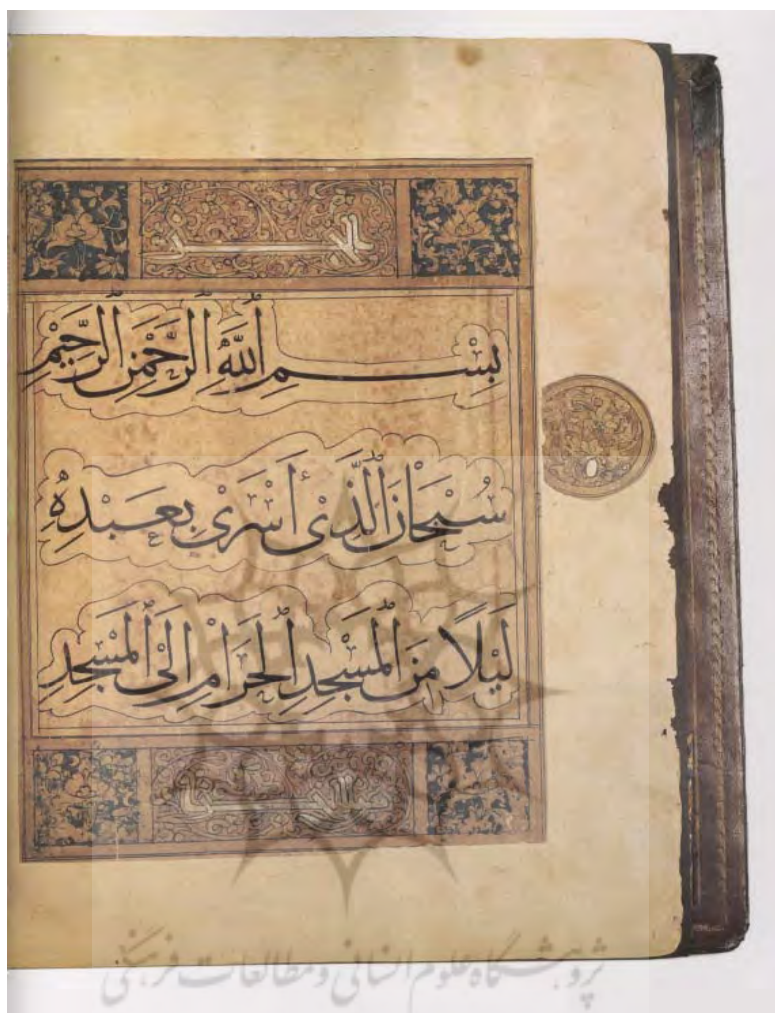 بِسْمِ اللَّهِ الرَّحْمَٰنِ الرَّحِيْمِ
سُبْحَانَ الَّذِىْ أَسْرٰى بِعَبْدِهِ
لَيْلًا مِنَ الْمَسْجِدِ الْحَرَامِ اِلَى الْمَسْجِدِ
پژوهشگاه علوم انسانی و مطالعات فرهنگی